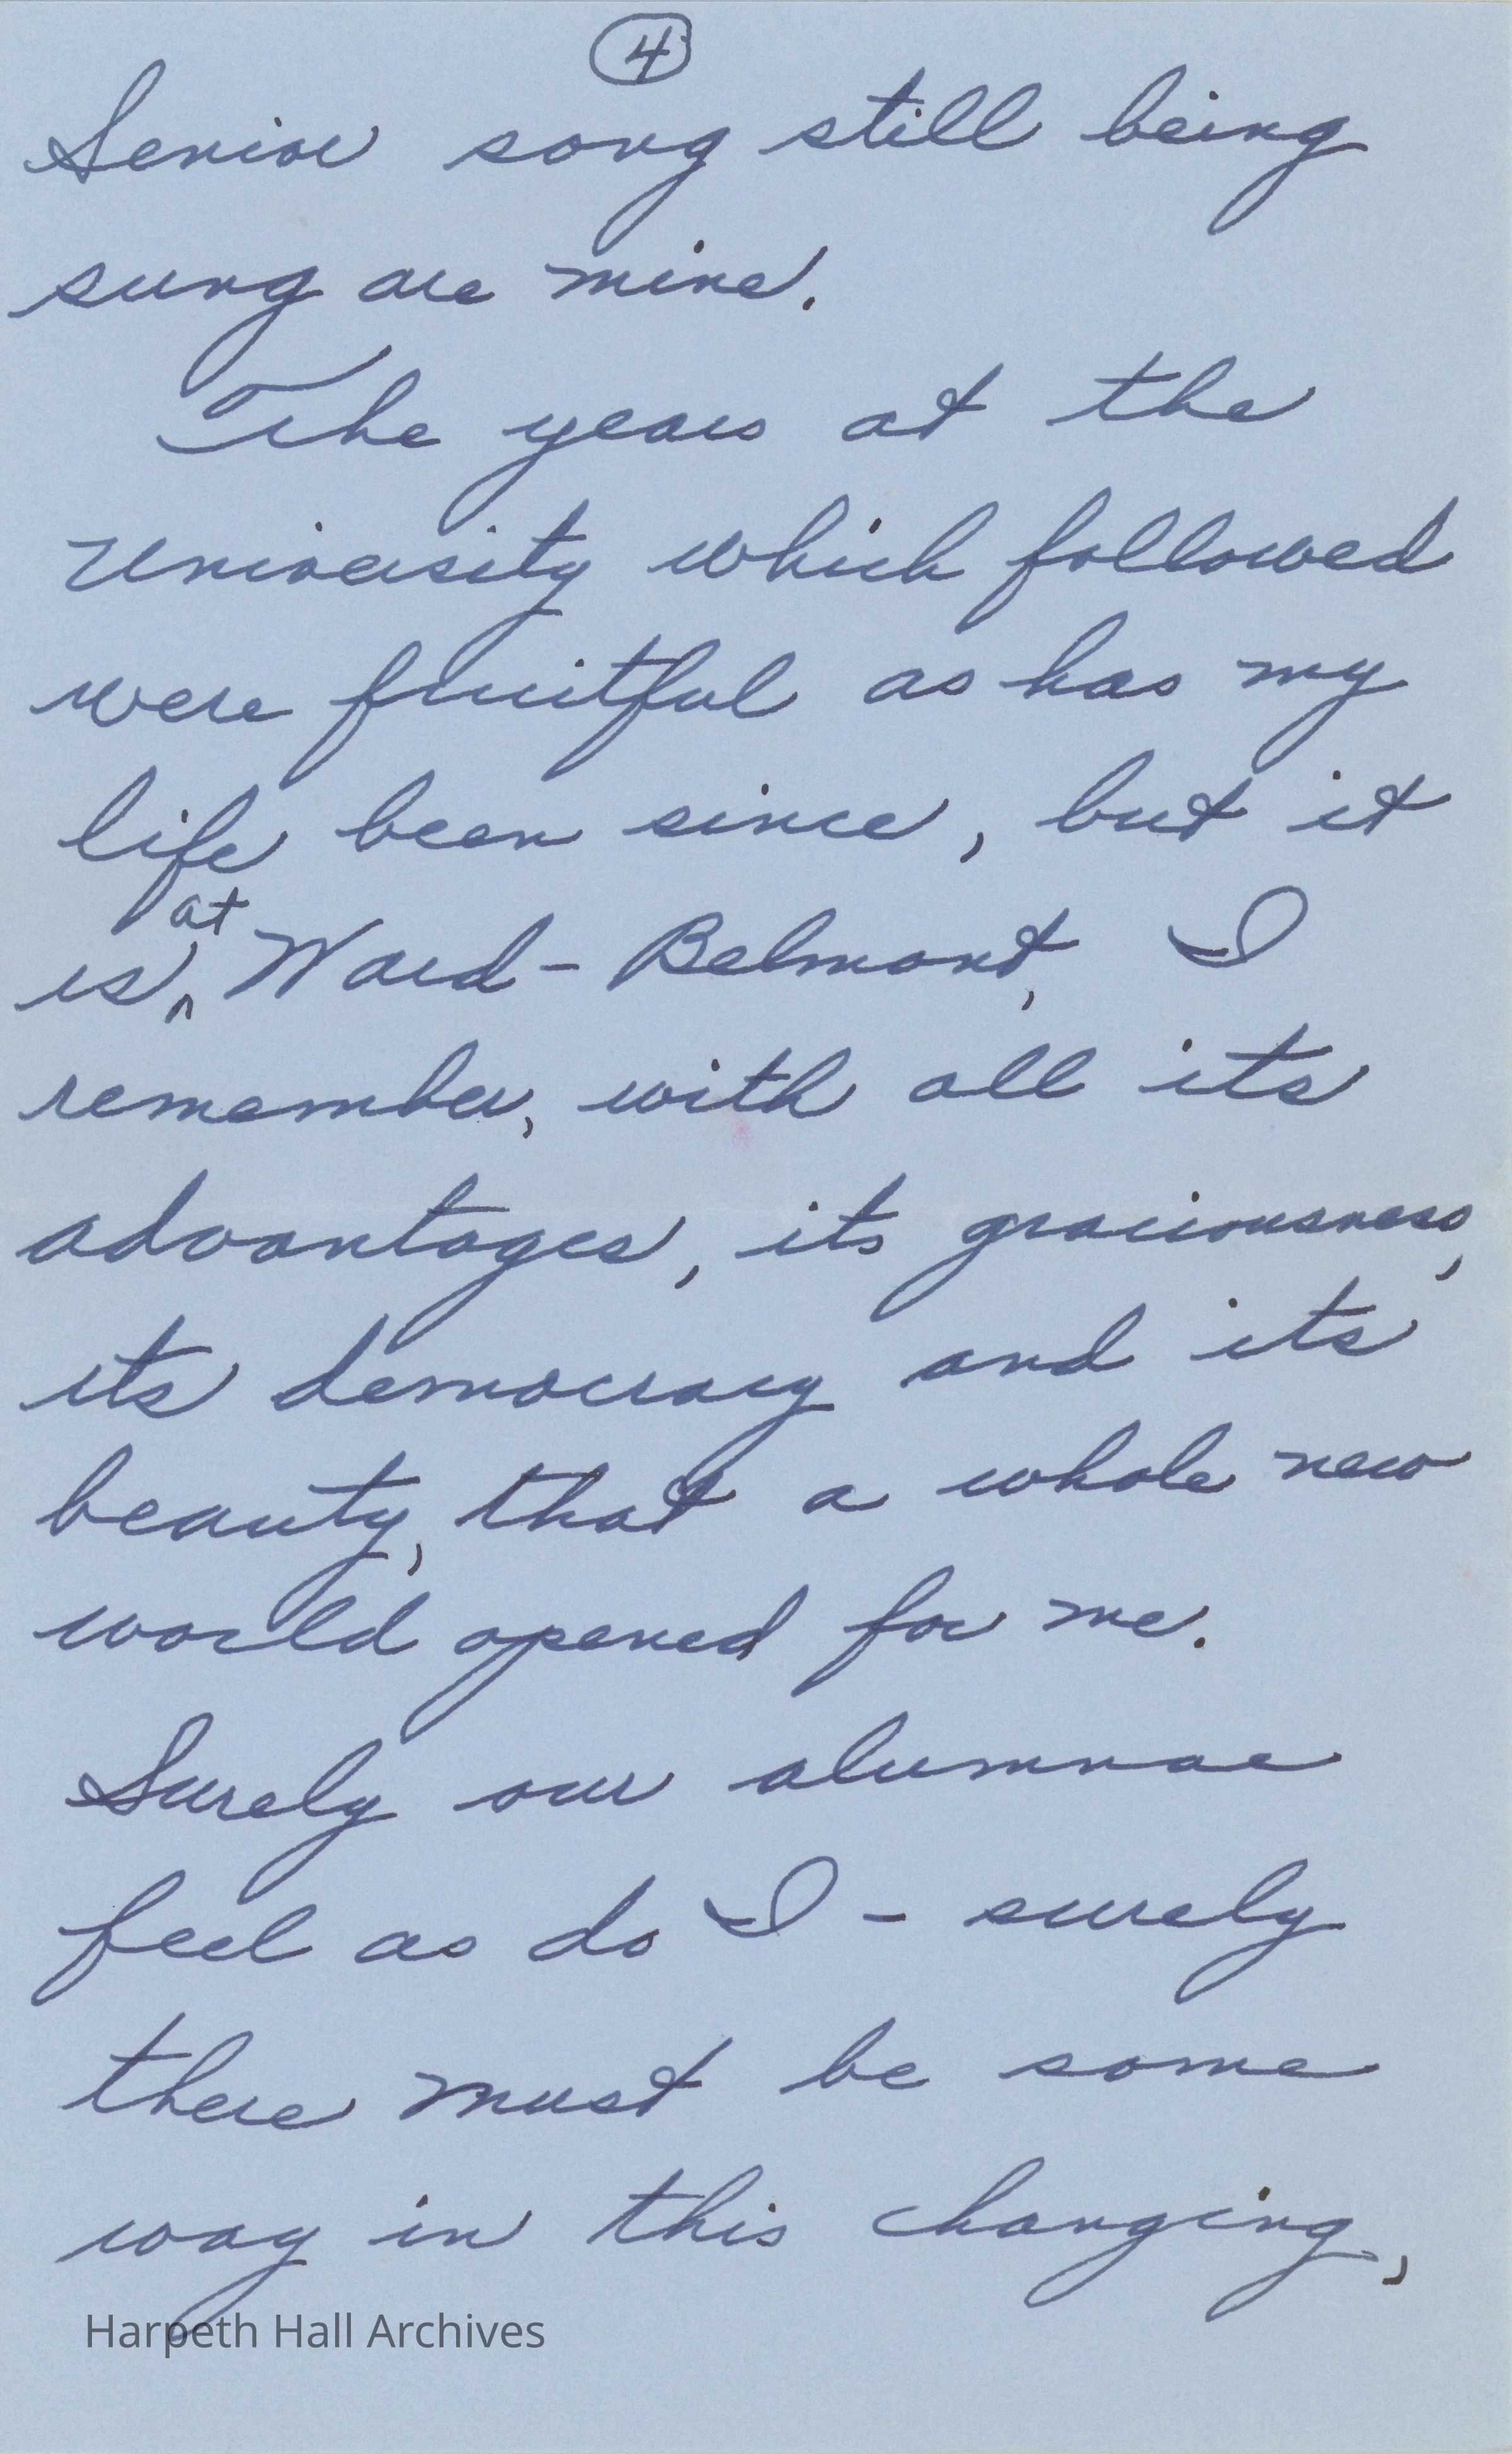 4
Senior song still being
sung are mine.
The years at the
University which followed
were fruitful as has my
life been since, but it
is at Ward-Belmont, I
remember, with all its
advantages, its graciousness,
its democracy and its
beauty, that a whole new
world opened for me.
Surely our alumnae
feel as do I - surely
there must be some
way in this changing,
Harpeth Hall Archives